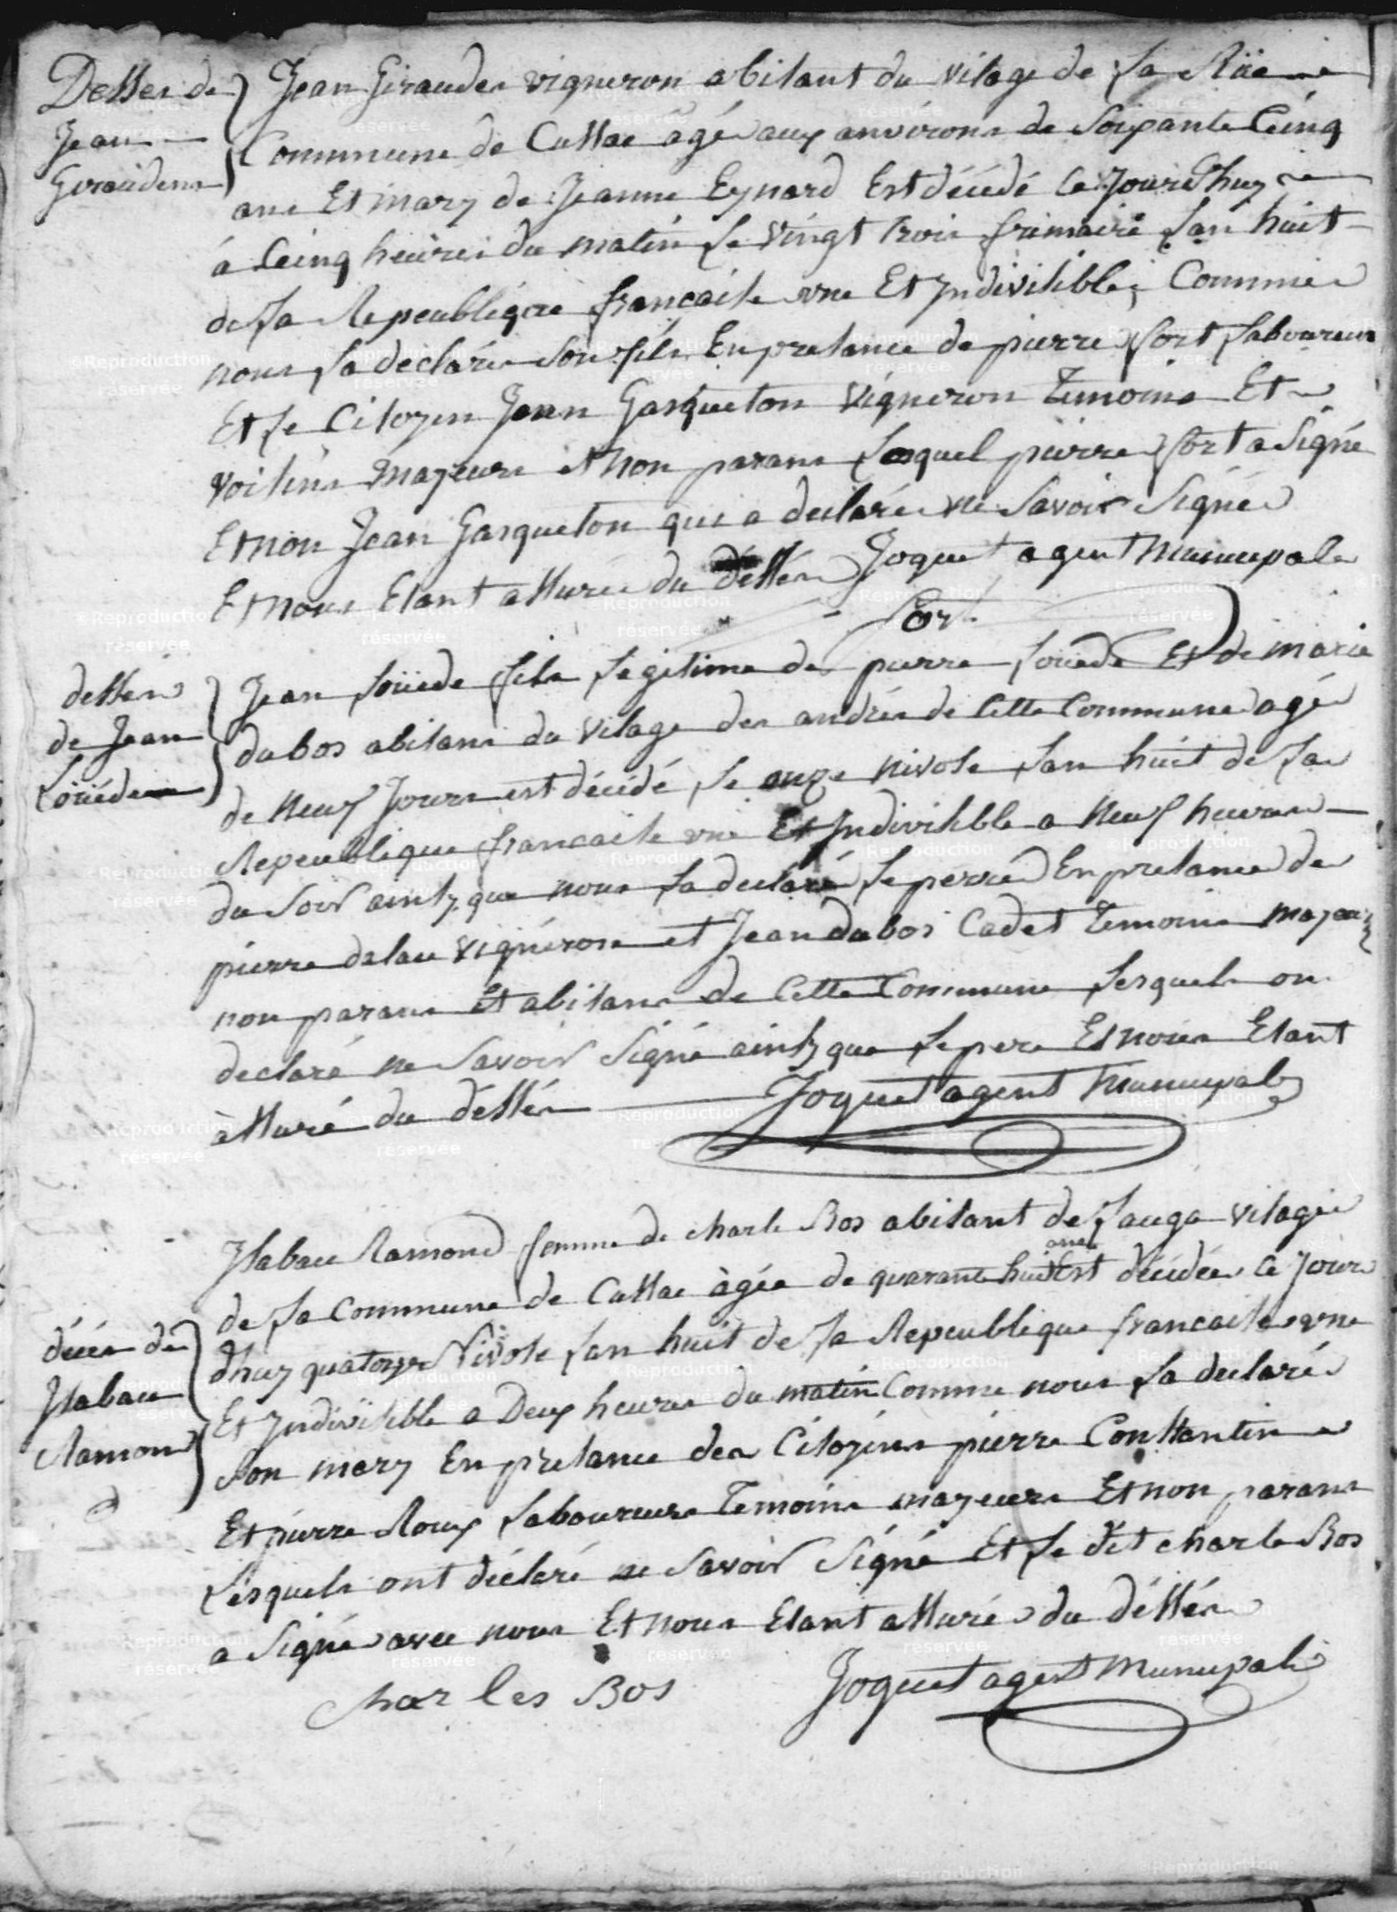 Desses de
Jean
Giraudeau
Jean Giraudeau vigneron abitant du vilage de la Räe
Commune de Cussac agé aux anvirons de Soixante Cinq
ans Et mary de Jeanne Eynard Est décédé ce Jourdhuy
á Ceinq heures du matin le vingt trois frimaire lan huit
de la Repeublique francaise vne Et Indivisible; Comme
nous la declaré son fils En presance de pierre fort laboureur
Et le Citoyen Jean Gasqueton vigneron Temoins Et
voisins majeurs et non parans lesquel pierre fort a Signé
Et non Jean Gasqueton qui a declaré ne Savoir Signé
Et nous Etant assuré du déssés Joquet agent Municipale
fort
dessés
de Jean
Loüede
Jean loüede fils legitime de pierre loüede Et de marie
dubos abitans du vilage des andrés de Cette Commune agé
de neuf Jours est décédé le onze nivose lan huit de la
Repeublique francaise vne Et Indivisible a neuf heures
du soir ainsy que nous la declaré le perre En presance de
pierre delau vigneron et Jean dubos Cadet Temoins majeurs
non parans Et abitans de Cette Commune lesquels on
declaré ne Savoir Signé ainsy que le pere Et nous Etant
assuré du déssés Joquet agent Municipale
décés de
Isabau
Ramond
Isabau Ramond femme de charle Bos abitant de lauga vilage
de la Commune de Cussac àgée de quarante huit ans Est décédée Ce Jour
dhuy quatorze Nivose lan huit de la Repeublique francaise vne
Et Indivisible a Deux heures du matin Comme nous la declaré
son mary En presance des Citoyens pierre Constantin
Et pierre Roux laboureurs Temoins majeurs Et non parans
lesquels ont déclaré ne Savoir Signé Et le dit charle Bos
a Signé avec nous Et nous Etant assuré du déssés
Charles Bos Joquet agent Municipale
©Reproduction réservée